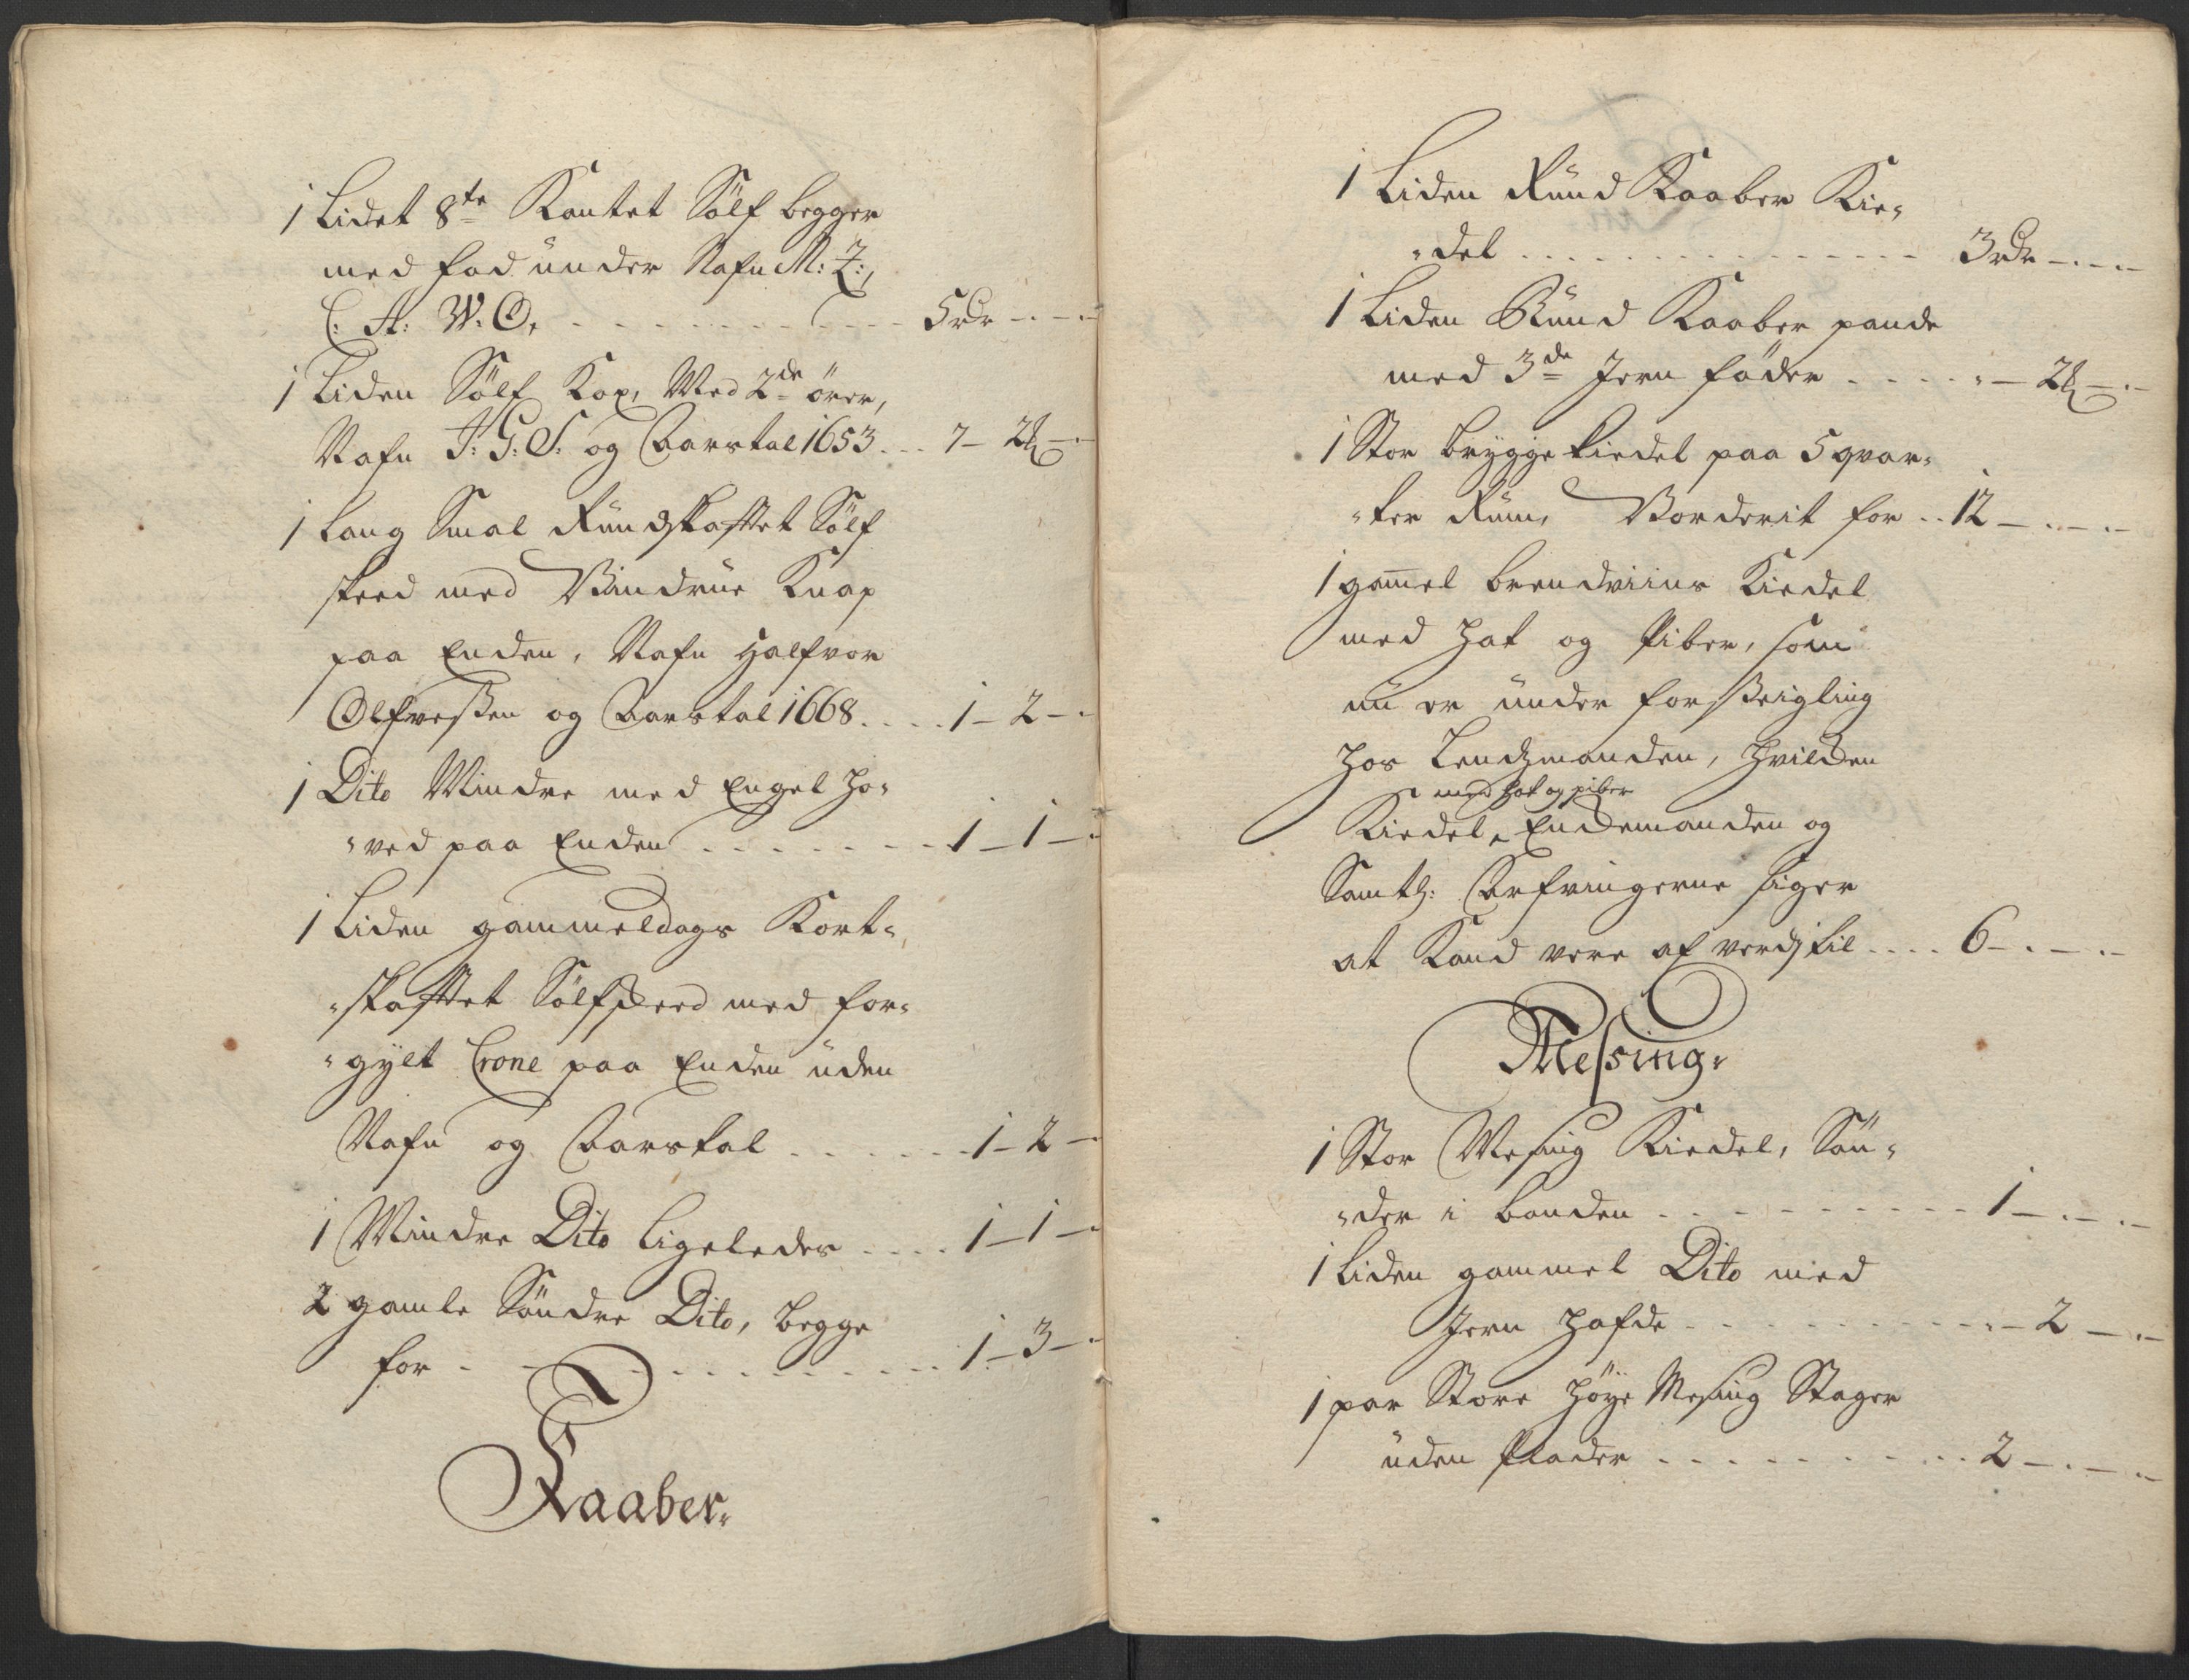 1 Lidet 8te Kantet Sölf begger
med fod under Nafn M: J:,
C: A: W. O. - - - - - - 5 Rdr -.-.-
1 Liden Sölf Kop, Med 2de ører,
Nafn J: G: S: og Aarstal 1653 . . . 7 - 2 -.-
1 Lang Smal Rundskafftet Sölf
skeed med Vindrue Knap
paa Enden, Nafn Halfvor
Olfvessen og Aarstal 1668 . . . . 1 - 2 -.
1 Dito Mindre med Engel ho-
-ved paa Enden . . . . . . . 1 - 1 -.
1 Liden gammeldags Kort-
-skafftet Sölfskeed med for-
-gylt Crone paa Enden uden
Nafn og Aarstal . . . . . . 1 - 2 -
1 Mindre Dito Ligeledes . . . . 1 - 1 -.
2 gamle Söndre Dito, begge
for - - - - . . . . . . . . 1 - 3 -.
Kaaber.
1 Liden Rund Kaaber Kie-
-del . . . . . . . . . . . . . 3 Rdr -.-.-
1 Liden Rund Kaaber pande
med 3de Jern föder . . . . . - 2 -.-
1 Stor brygge kiedel paa 5 qvar-
-ter Rum, Vorderit for . . 12 -.-.-
1 gam̄el brendviins Kiedel
med hat og Piber, som
nu er under forseigling
hos Lendsmanden, hvilcken
med hat og piber
Kiedel, Enckemanden og
Samtl: Arfvingerne siger
at Kand vere af verdj til . . . . 6 -.-.-
Messing.
1 Stor Messing Kiedel, Sön-
-der i bonden . . . . . . . . . 1 -.-.-
1 Liden gammel Dito med
Jern hafde . . . . . . . . . . - 2 -.-
1 par Store höye Messing Stager
uden Plader . . . . . . . . . 2 -.-.-